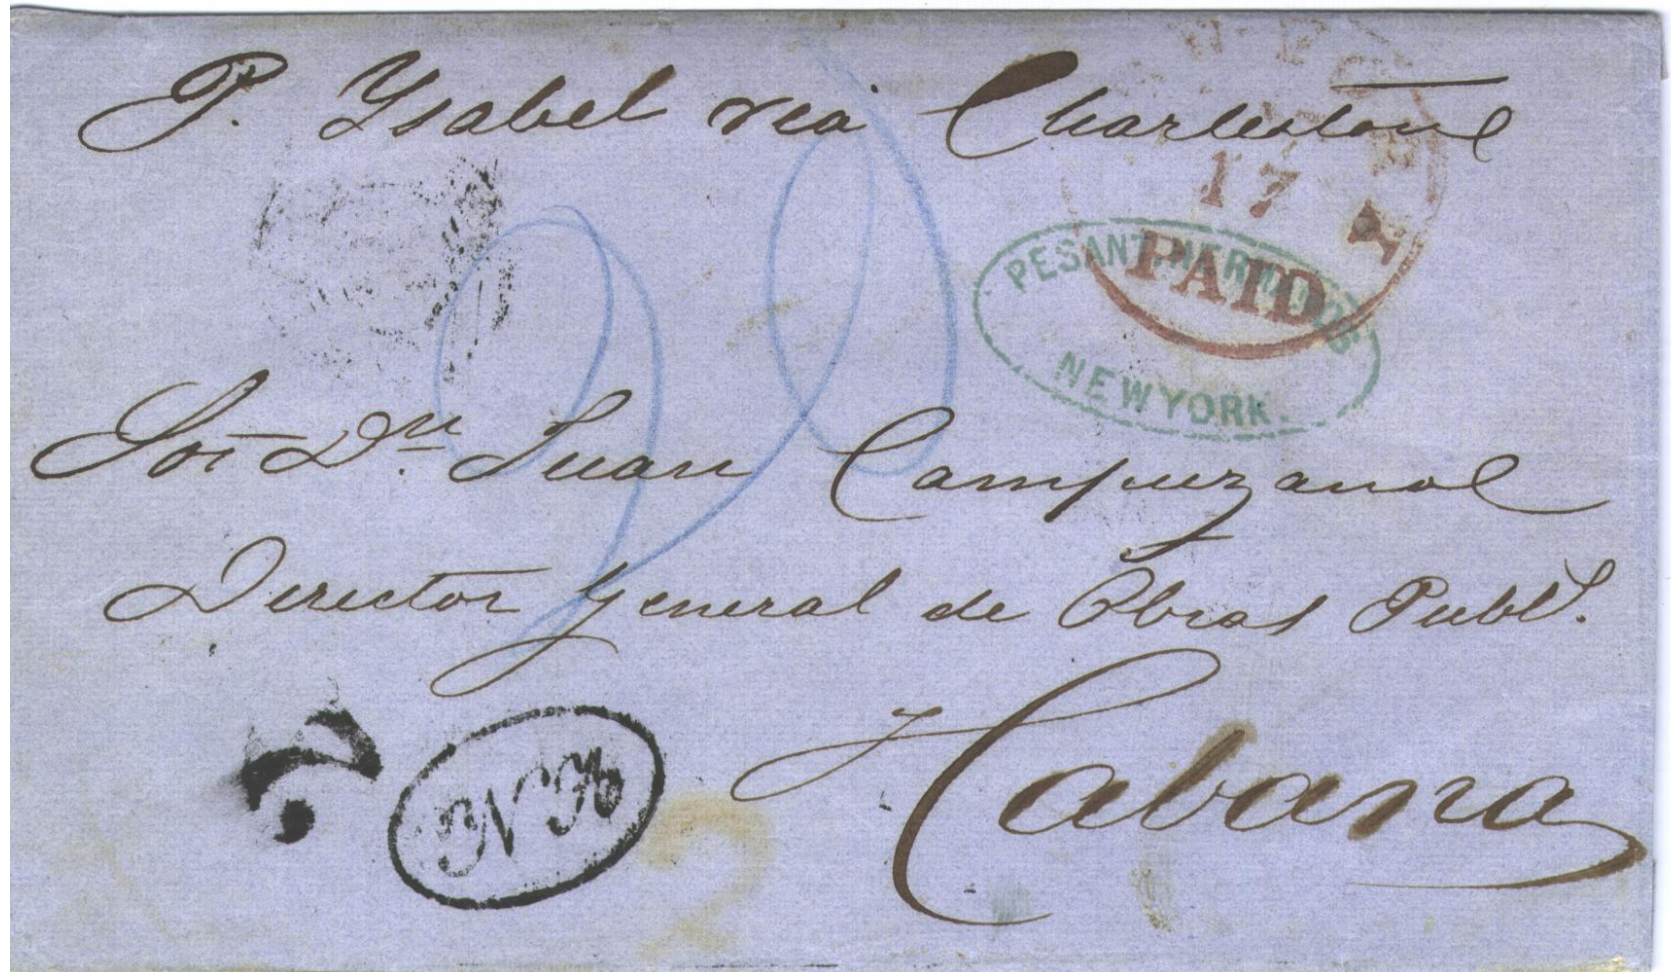 P. Ysabel via Charleston
17
PAID
PESANT HERMANOS
NEW YORK.
Sor. Dn. Juan Campuzano
Director General de Obras Publs.
Habana
NA
2